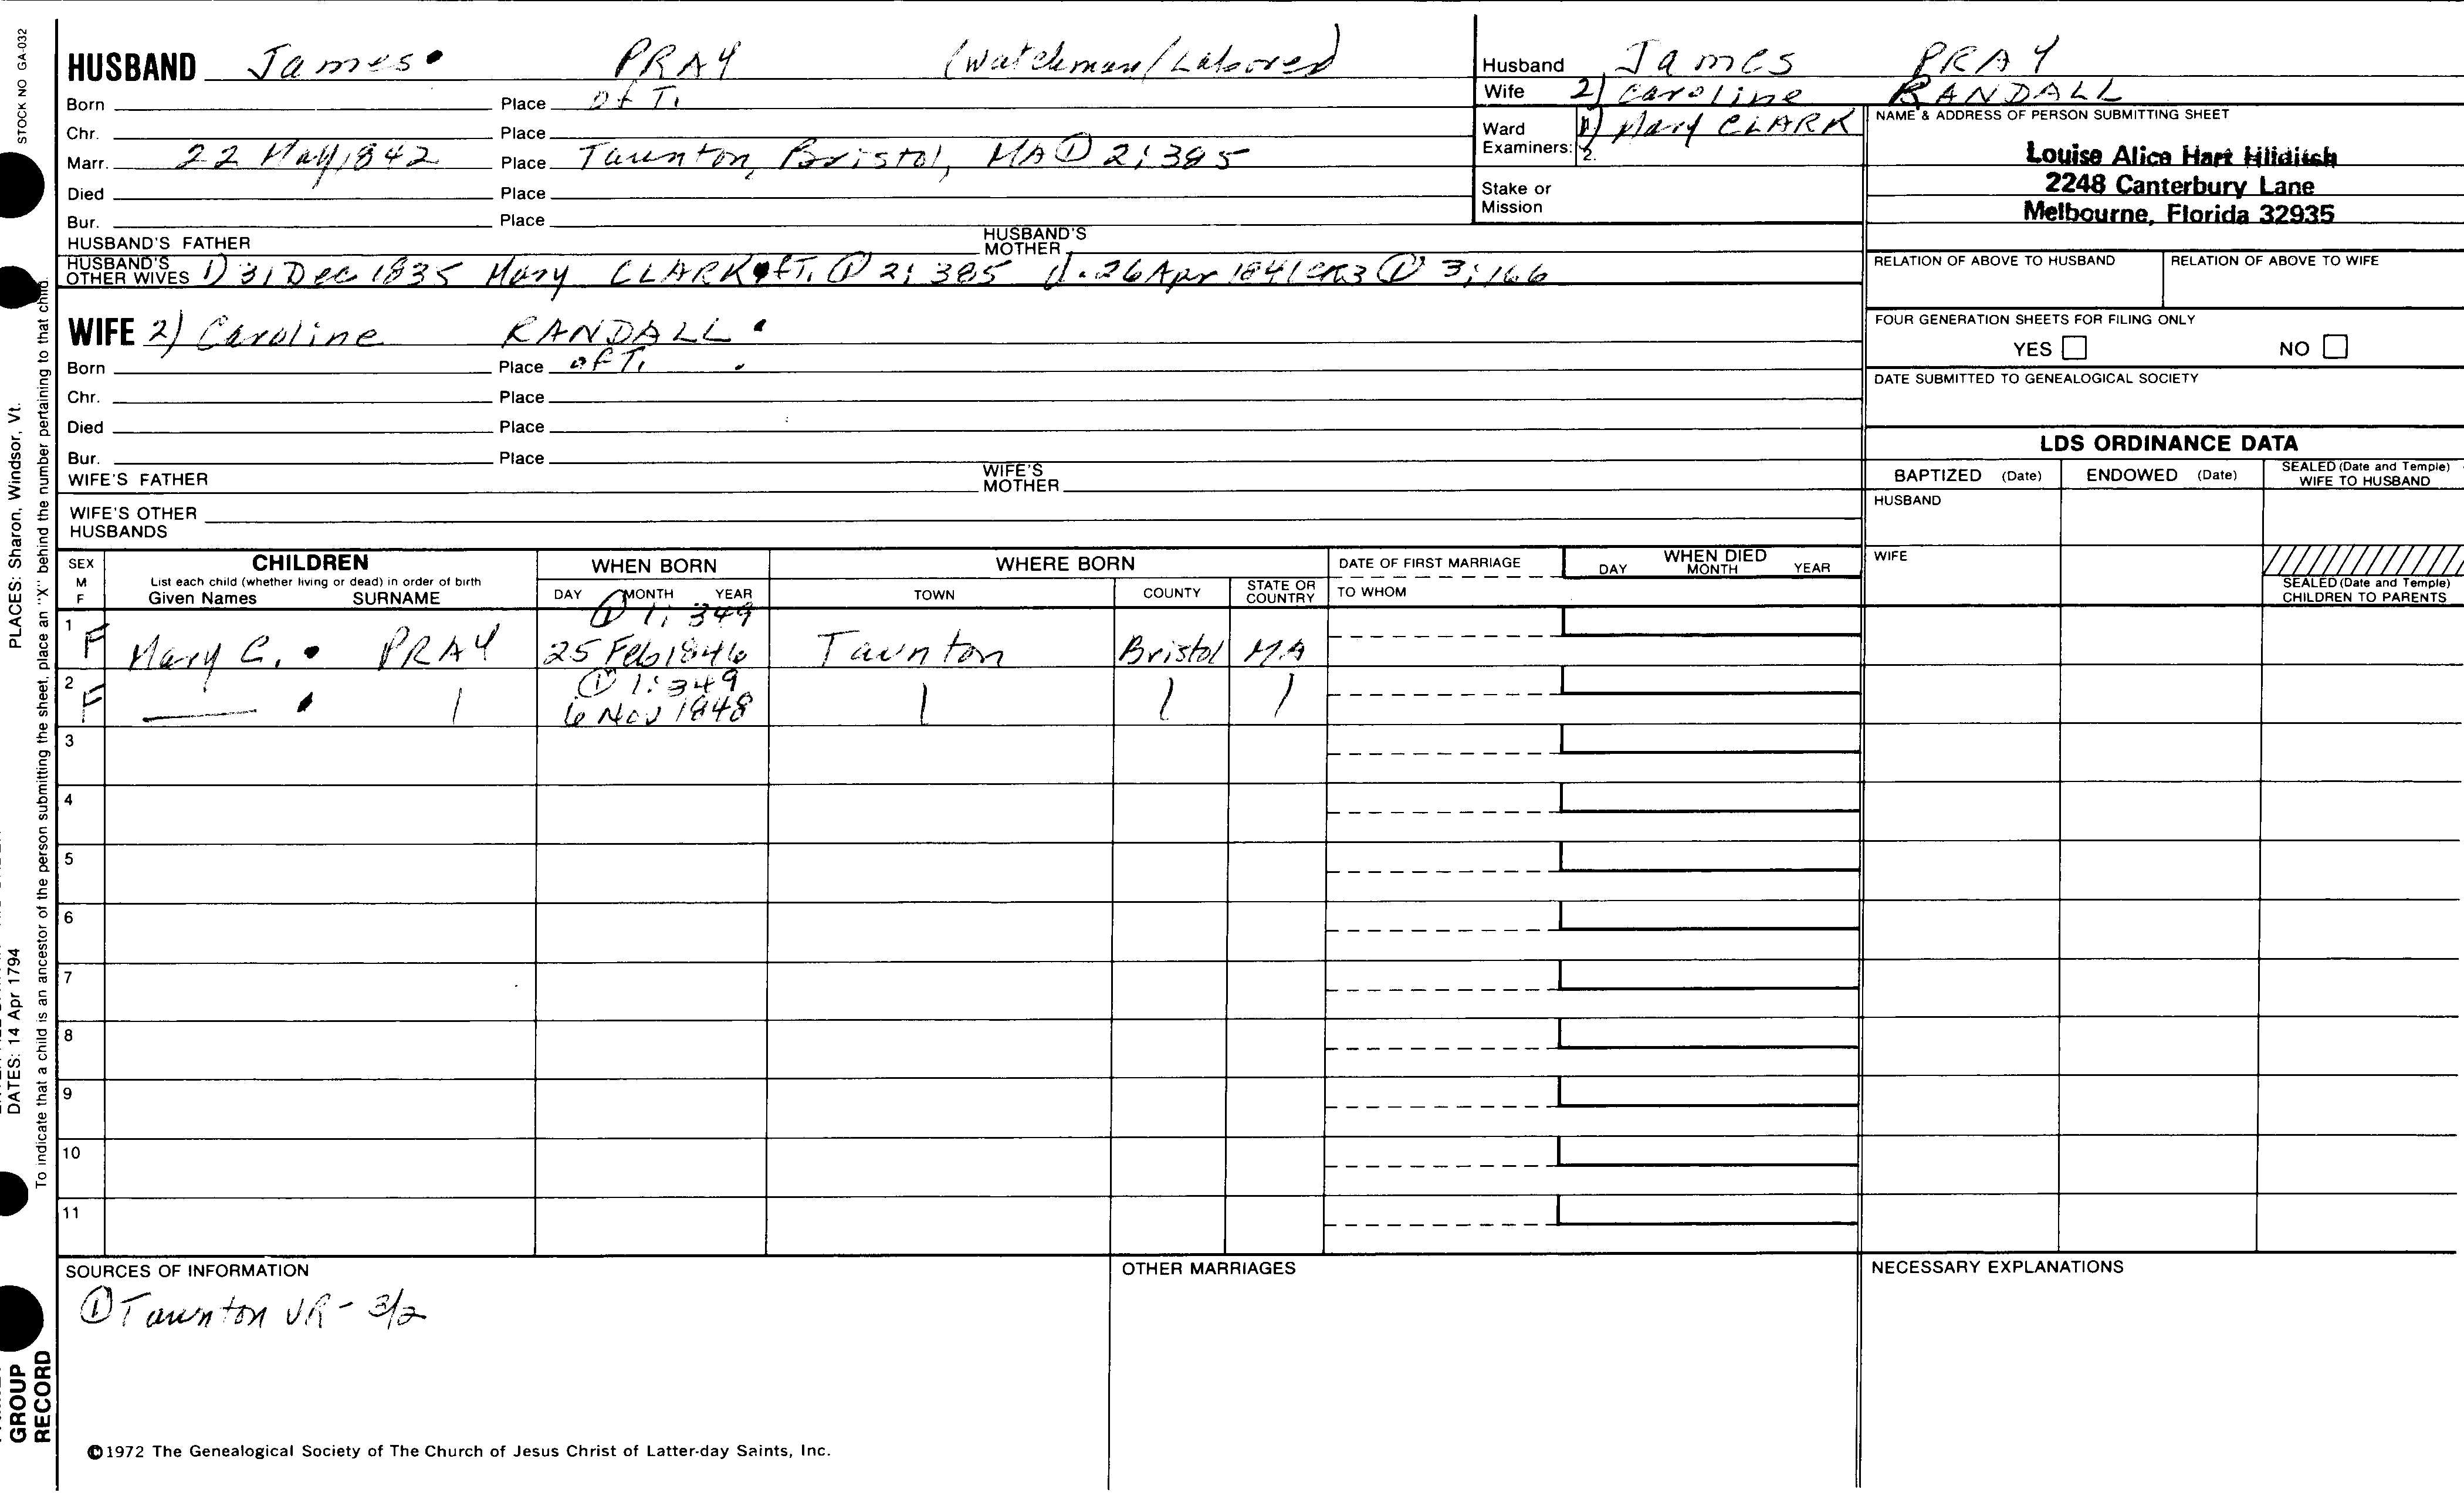 STOCK NO GA-032
HUSBAND James PRAY (Watchman/Laborer)
Born Place of T.
Chr. Place
Marr. 22 May 1842 Place Taunton, Bristol, MA ① 2:385
Died Place
Bur. Place
HUSBAND'S FATHER HUSBAND'S MOTHER
HUSBAND'S OTHER WIVES 1) 31 Dec 1835 Mary CLARK of T. ① 2:385 d. 26 Apr 1841 ① 3:166
Husband James PRAY
Wife 2) Caroline RANDALL
Ward 1) Mary CLARK
Examiners: 2.
Stake or
Mission
NAME & ADDRESS OF PERSON SUBMITTING SHEET
Louise Alice Hart Hilditch
2248 Canterbury Lane
Melbourne, Florida 32935
RELATION OF ABOVE TO HUSBAND RELATION OF ABOVE TO WIFE
FOUR GENERATION SHEETS FOR FILING ONLY
YES NO
DATE SUBMITTED TO GENEALOGICAL SOCIETY
WIFE 2) Caroline RANDALL
Born Place of T.
Chr. Place
Died Place
Bur. Place
WIFE'S FATHER WIFE'S MOTHER
WIFE'S OTHER
HUSBANDS
LDS ORDINANCE DATA
BAPTIZED (Date) ENDOWED (Date) SEALED (Date and Temple) WIFE TO HUSBAND
HUSBAND
WIFE
SEALED (Date and Temple)
CHILDREN TO PARENTS
SEX M F
CHILDREN
List each child (whether living or dead) in order of birth
Given Names SURNAME
WHEN BORN
DAY MONTH YEAR
WHERE BORN
TOWN COUNTY STATE OR COUNTRY
DATE OF FIRST MARRIAGE
TO WHOM
WHEN DIED
DAY MONTH YEAR
① 1:349
1 F Mary C. PRAY 25 Feb 1846 Taunton Bristol MA
① 1:349
2 F — 6 Nov 1848
3
4
5
6
7
8
9
10
11
SOURCES OF INFORMATION
① Taunton VR - 3/2
OTHER MARRIAGES
NECESSARY EXPLANATIONS
©1972 The Genealogical Society of The Church of Jesus Christ of Latter-day Saints, Inc.
PLACES: Sharon, Windsor, Vt.
DATES: 14 Apr 1794
To indicate that a child is an ancestor of the person submitting the sheet, place an "X" behind the number pertaining to that child.
GROUP
RECORD